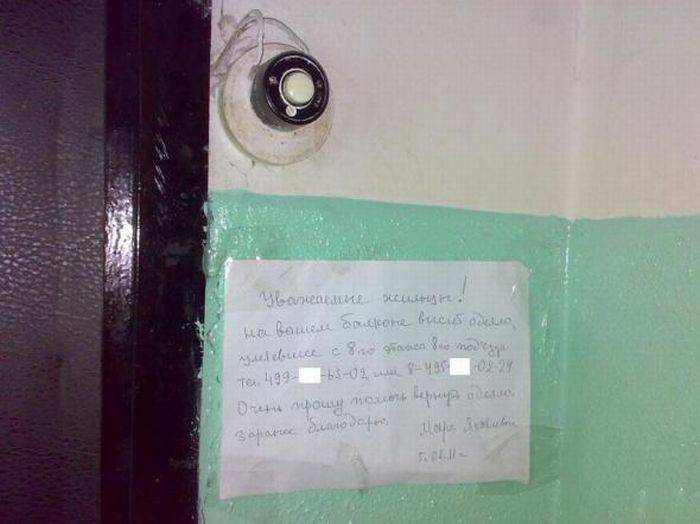 Уважаемые жильцы!
на вашем балконе висит одеяло,
улетевшее с 8-го этажа 8-го подъезда
тел. 499- -63-02 или 8-495- -02-24
Очень прошу помочь вернуть одеяло.
Заранее благодарю.